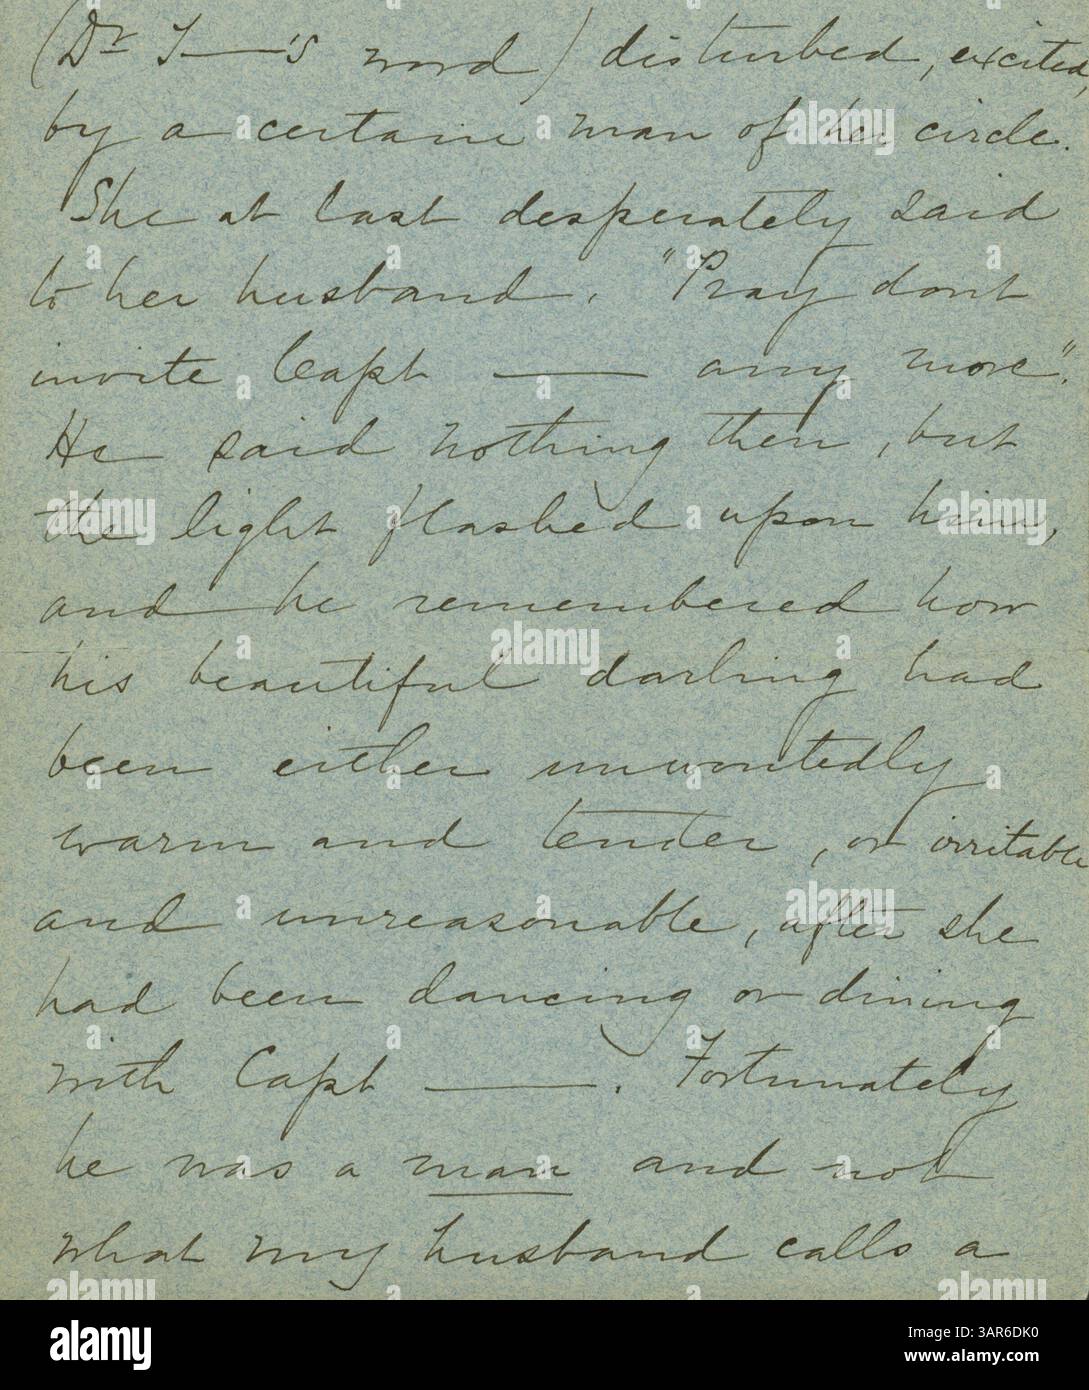 (Dr T——'s word) disturbed, excited,
by a certain man of her circle.
She at last desperately said
to her husband. "Pray dont
invite Capt —— any more".
He said nothing then, but
the light flashed upon him,
and he remembered how
his beautiful darling had
been either unwontedly
warm and tender, or irritable
and unreasonable, after she
had been dancing or dining
with Capt ——. Fortunately
he was a man and not
what my husband calls a
alamy
Image ID: 3AR6DK0
www.alamy.com